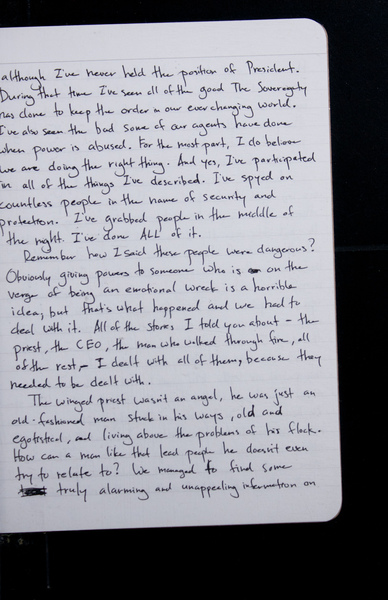 although I've never held the position of President.
During that time I've seen all of the good The Sovereignty
has done to keep the order in our ever changing world.
I've also seen the bad some of our agents have done
when power is abused. For the most part, I do believe
we are doing the right thing. And yes, I've participated
in all of the things I've described. I've spyed on
countless people in the name of security and
protection. I've grabbed people in the middle of
the night. I've done ALL of it.
Remember how I said these people were dangerous?
Obviously giving powers to someone who is on the
verge of being an emotional wreck is a horrible
idea, but that's what happened and we had to
deal with it. All of the stories I told you about - the
priest, the CEO, the man who walked through fire, all
of the rest, - I dealt with all of them, because they
needed to be dealt with.
The winged priest wasn't an angel, he was just an
old-fashioned man stuck in his ways, old and
egotistical, and living above the problems of his flock.
How can a man like that lead people he doesn't even
try to relate to? We managed to find some
truly alarming and unappealing information on